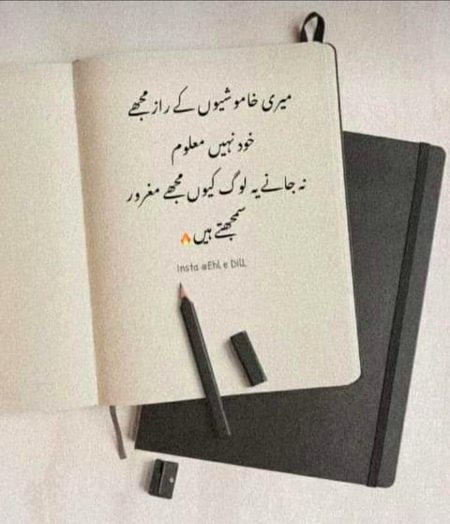 میری خاموشیوں کے راز مجھے
خود نہیں معلوم
نہ جانے یہ لوگ کیوں مجھے مغرور
سمجھتے ہیں🔥
Insta @Ehl e DiLL